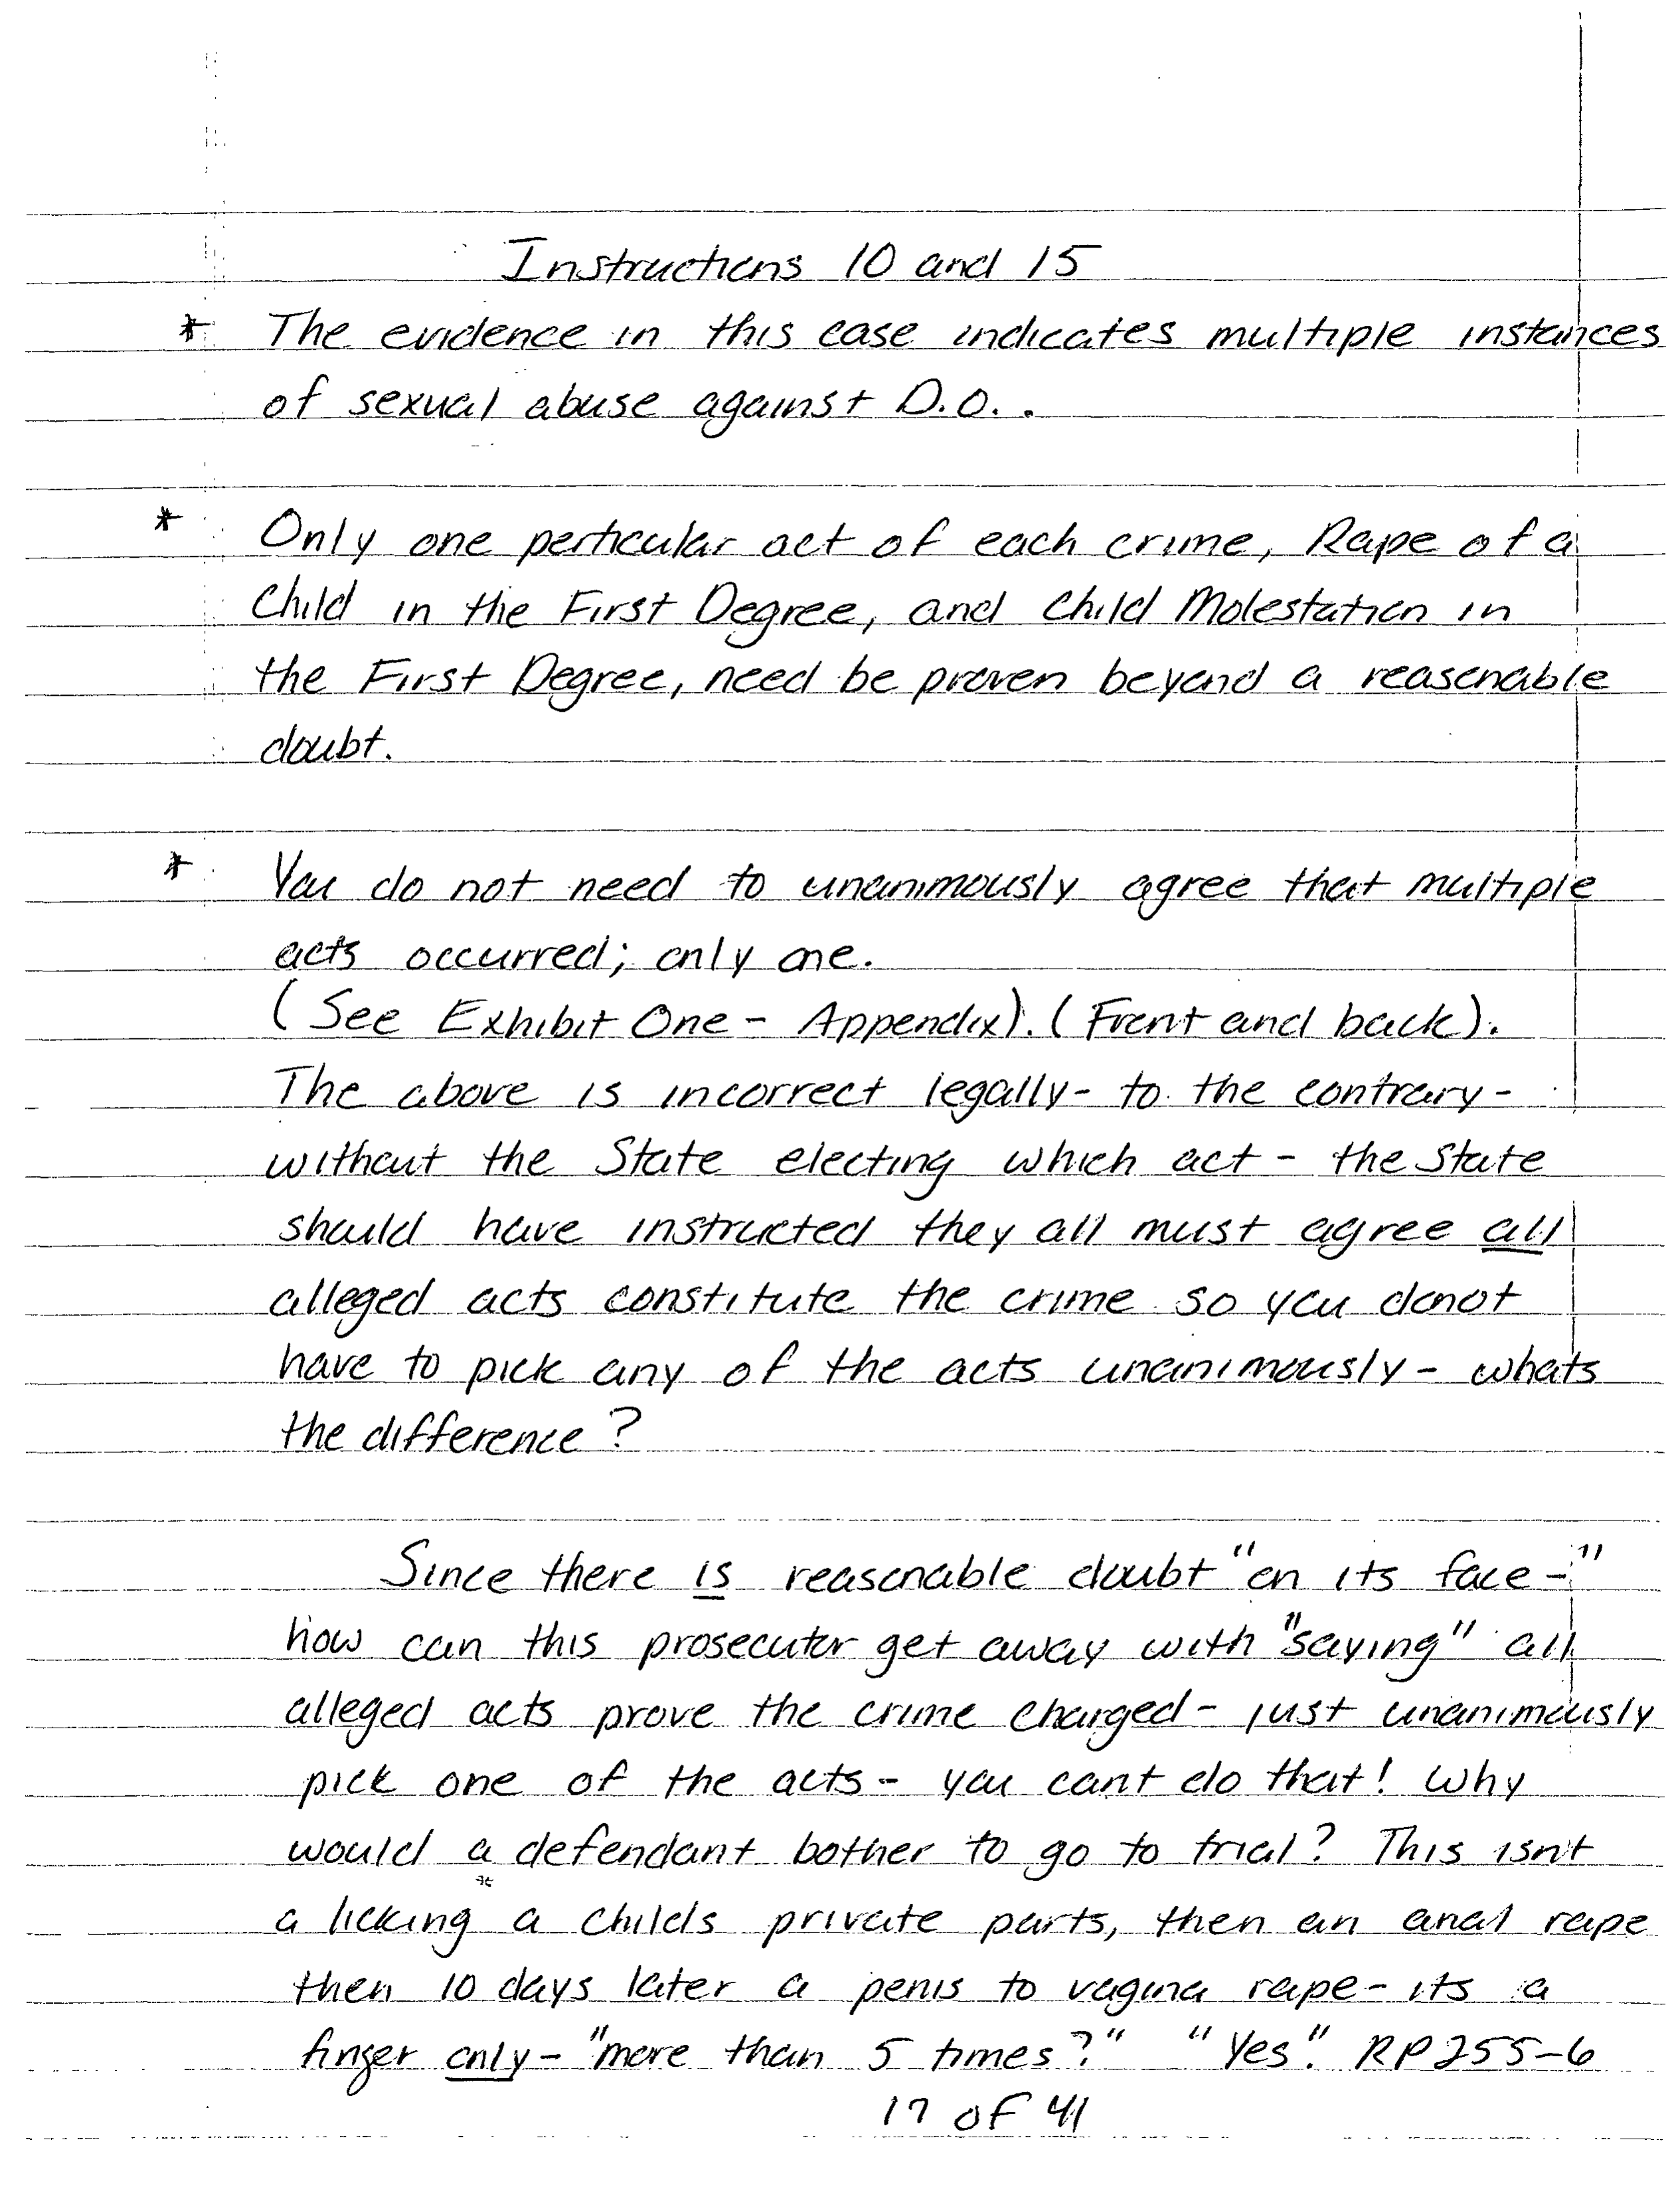 Instructions 10 and 15
* The evidence in this case indicates multiple instances
of sexual abuse against D.O. .
* Only one perticular act of each crime, Rape of a
Child in the First Degree, and Child Molestation in
the First Degree, need be proven beyond a reasonable
doubt.
* You do not need to unanimously agree that multiple
acts occurred; only one.
(See Exhibit One - Appendix). (Front and back).
The above is incorrect legally - to the contrary -
without the State electing which act - the State
should have instructed they all must agree all
alleged acts constitute the crime so you donot
have to pick any of the acts unanimously - whats
the difference?
Since there is reasonable doubt "on its face -"
how can this prosecutor get away with "saying" all
alleged acts prove the crime charged - just unanimously
pick one of the acts - you cant do that! Why
would a defendant bother to go to trial? This isn't
a licking a childs private parts, then an anal rape
then 10 days later a penis to vagina rape - its a
finger only - "more than 5 times?" "Yes". RP 255-6
17 of 41